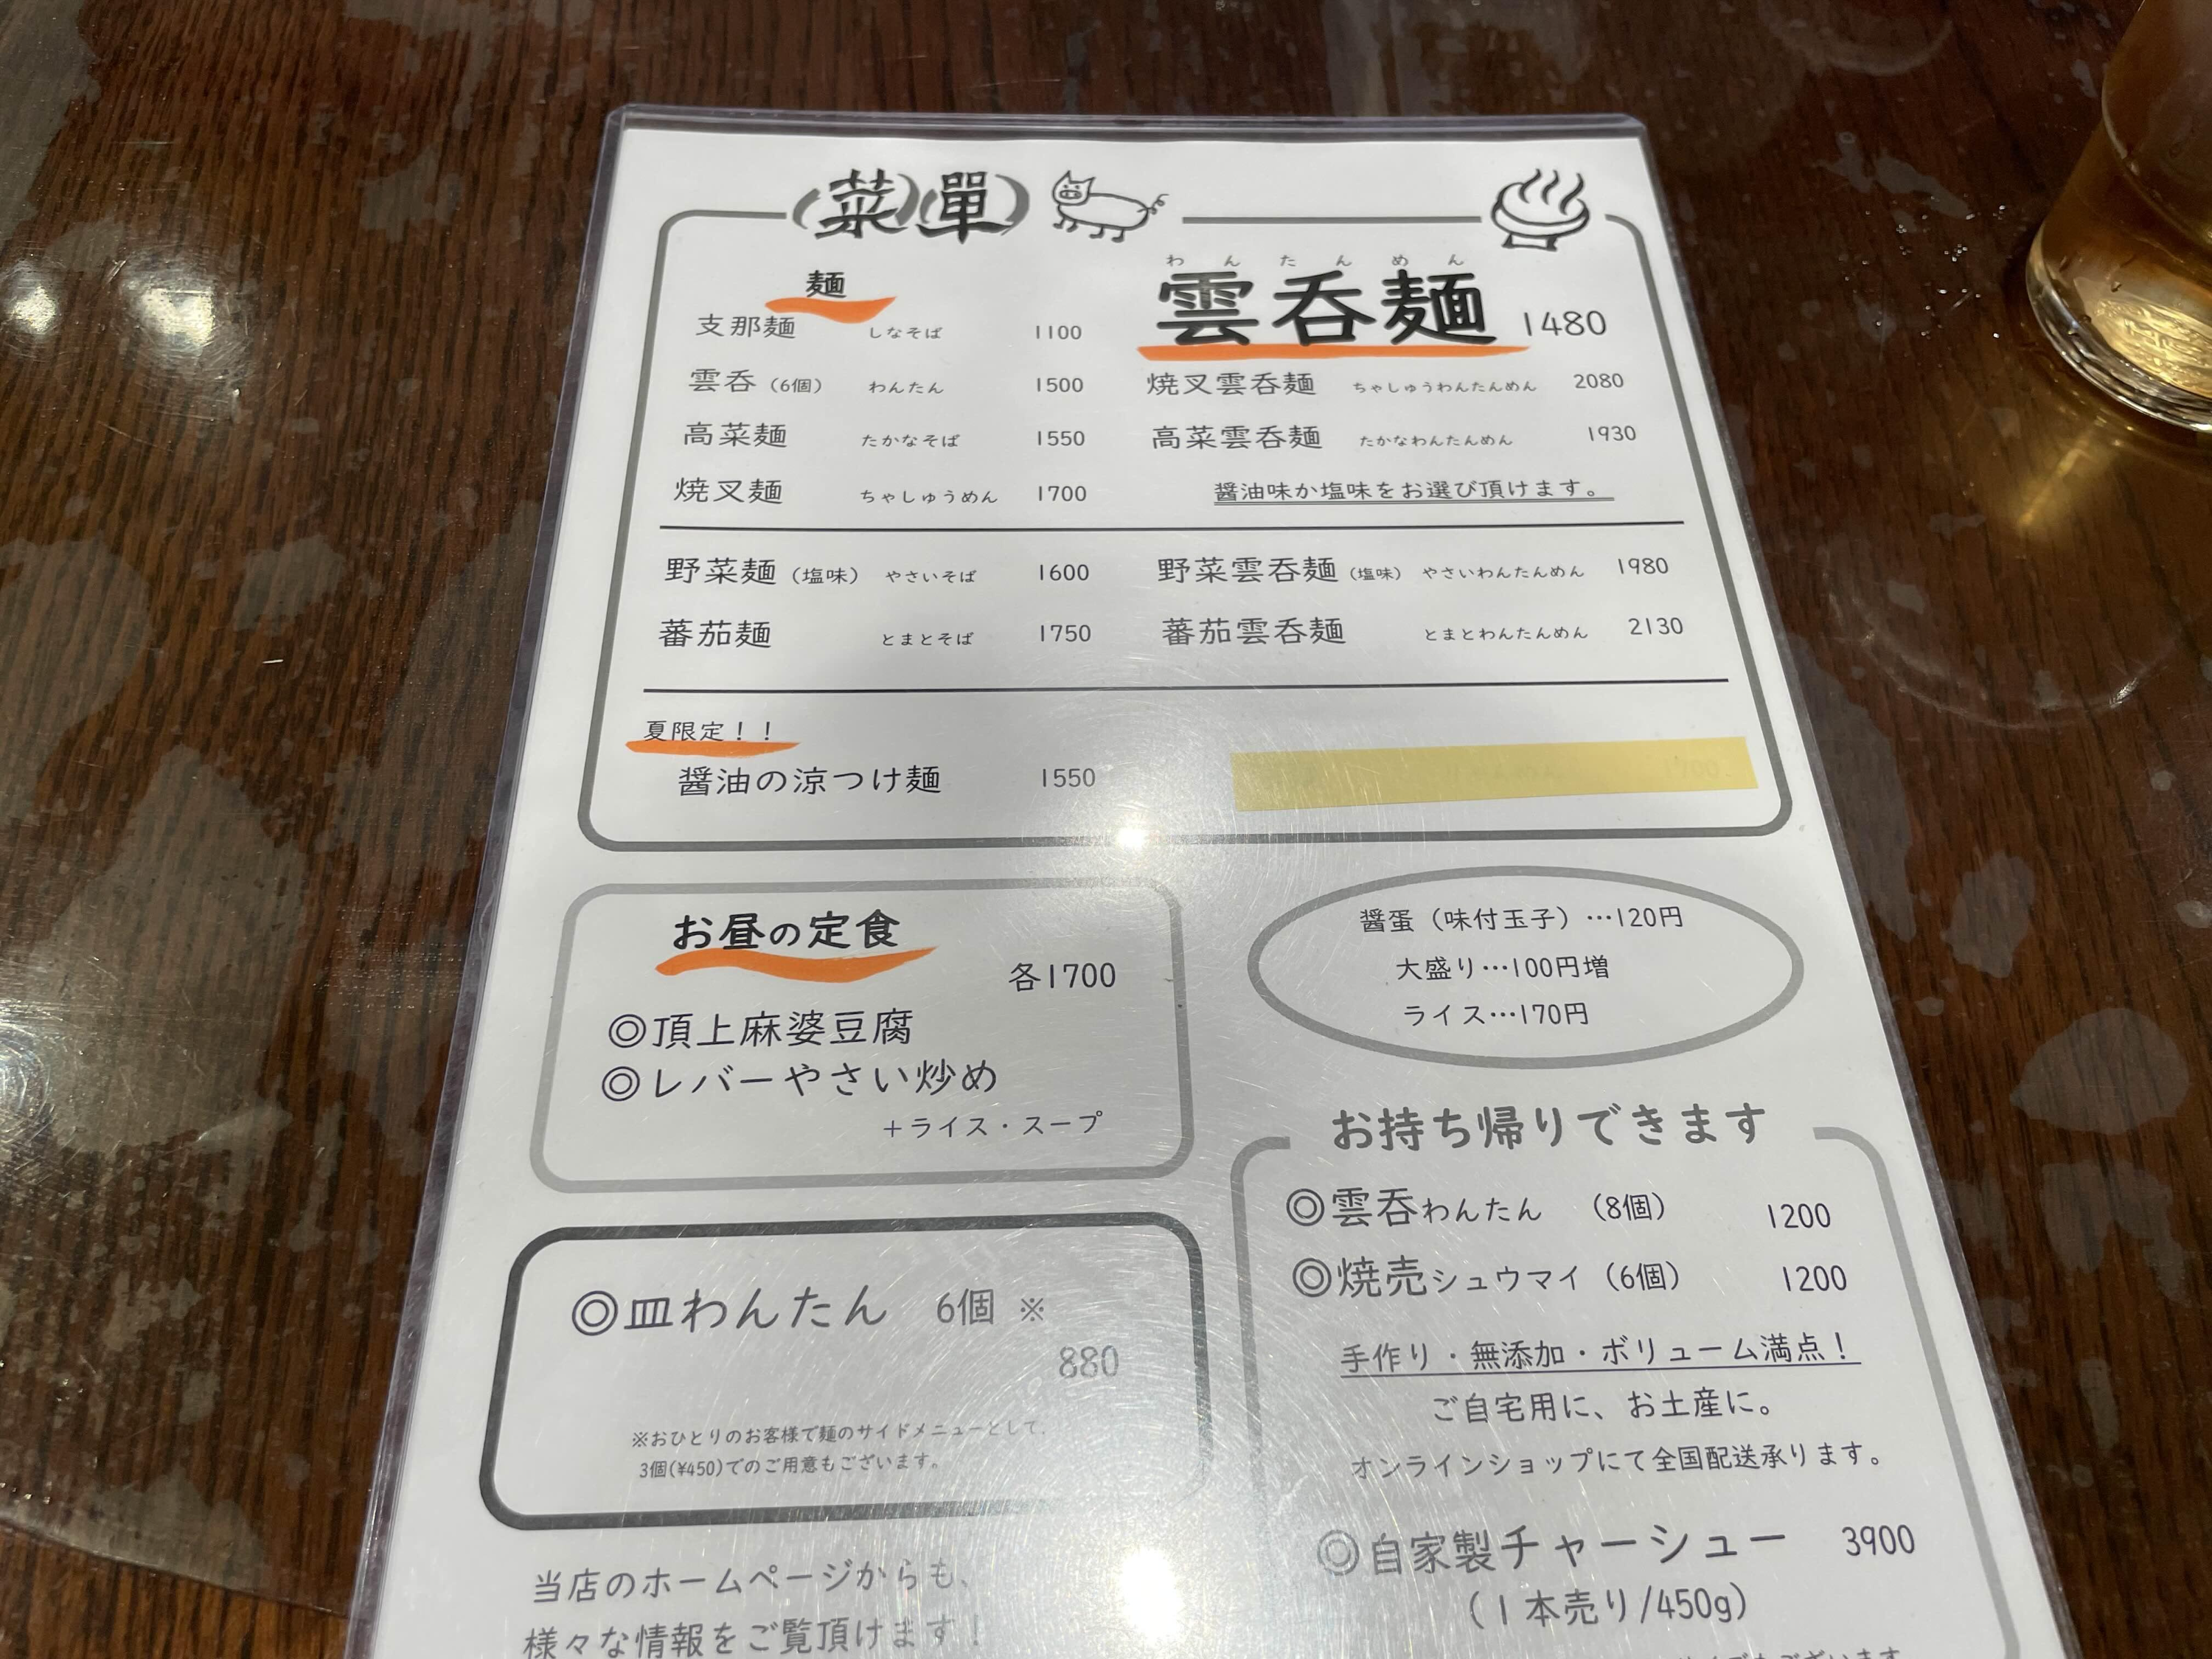 菜單
麺
支那麺 しなそば 1100
雲呑(6個) わんたん 1500
高菜麺 たかなそば 1550
焼叉麺 ちゃしゅうめん 1700
わんたんめん
雲呑麺 1480
焼叉雲呑麺 ちゃしゅうわんたんめん 2080
高菜雲呑麺 たかなわんたんめん 1930
醤油味か塩味をお選び頂けます。
野菜麺(塩味) やさいそば 1600
野菜雲呑麺(塩味) やさいわんたんめん 1980
蕃茄麺 とまとそば 1750
蕃茄雲呑麺 とまとわんたんめん 2130
夏限定！！
醤油の涼つけ麺 1550
お昼の定食
各1700
◎頂上麻婆豆腐
◎レバーやさい炒め
＋ライス・スープ
醤蛋（味付玉子）…120円
大盛り…100円増
ライス…170円
◎皿わんたん 6個 ※
880
※おひとりのお客様で麺のサイドメニューとして、
3個(¥450)でのご用意もございます。
お持ち帰りできます
◎雲呑わんたん （8個） 1200
◎焼売シュウマイ（6個） 1200
手作り・無添加・ボリューム満点！
ご自宅用に、お土産に。
オンラインショップにて全国配送承ります。
◎自家製チャーシュー 3900
（1本売り/450g）
当店のホームページからも、
様々な情報をご覧頂けます！